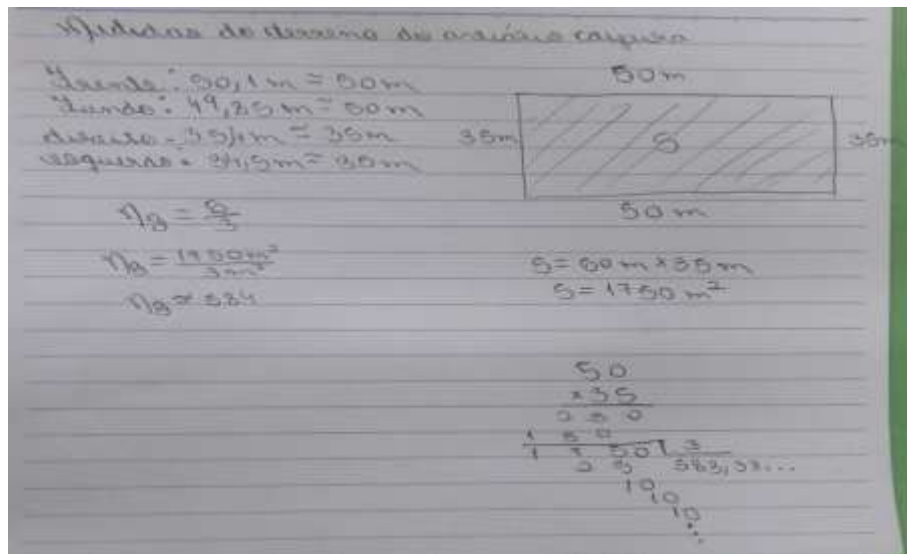 Medidas do terreno do ordinário caipira
Frente: 50,1m ≅ 50m
Fundo: 49,85m ≅ 50m
direito - 35,1m ≅ 35m
esquerdo - 34,5m ≅ 35m
50m
35m
S
35m
50m
n₃ = S/3
n₃ = 1750m²/3m²
n₃ ≅ 584
S = 50m x 35m
S = 1750 m²
50
x 35
250
150
1750 3
25 583,33...
10
10
10